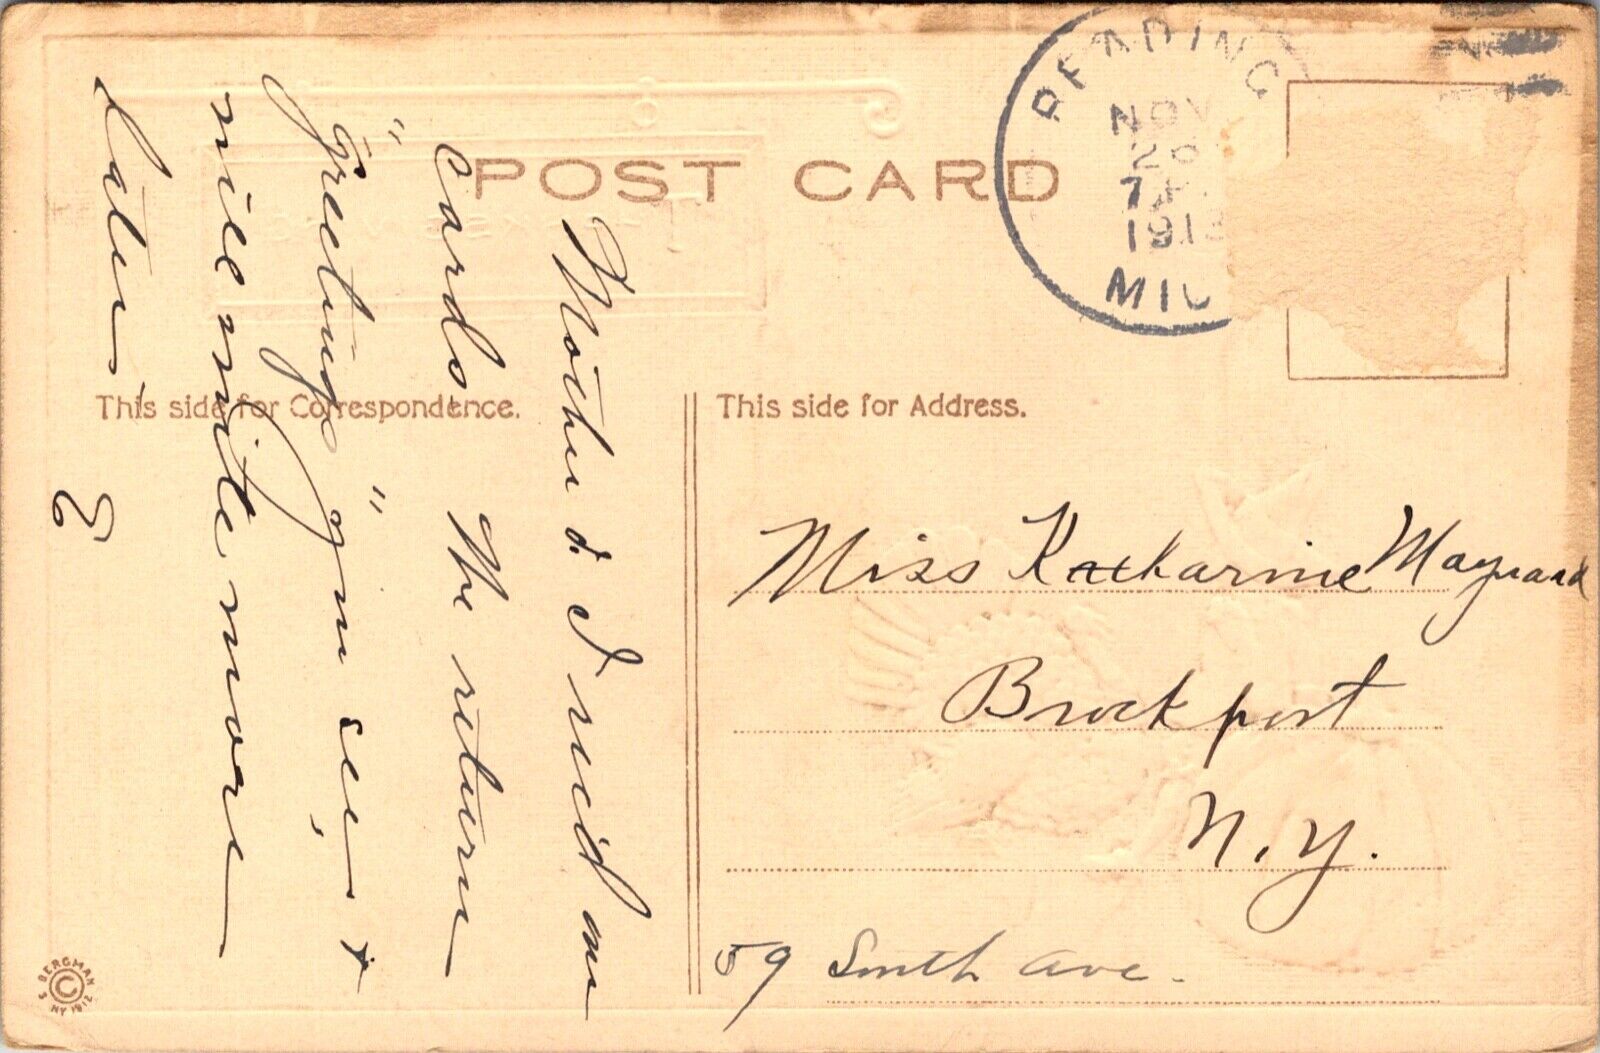 POST CARD
READING
NOV
26
7
191
MIC
This side for Correspondence.
This side for Address.
Mother & I rec'd our
cards. We return
"Greetings" from all, +
will write more
later.
E
Miss Katharine Maynard
Brockport
N.Y.
59 South Ave.
S BERGMAN
©
NY 1912